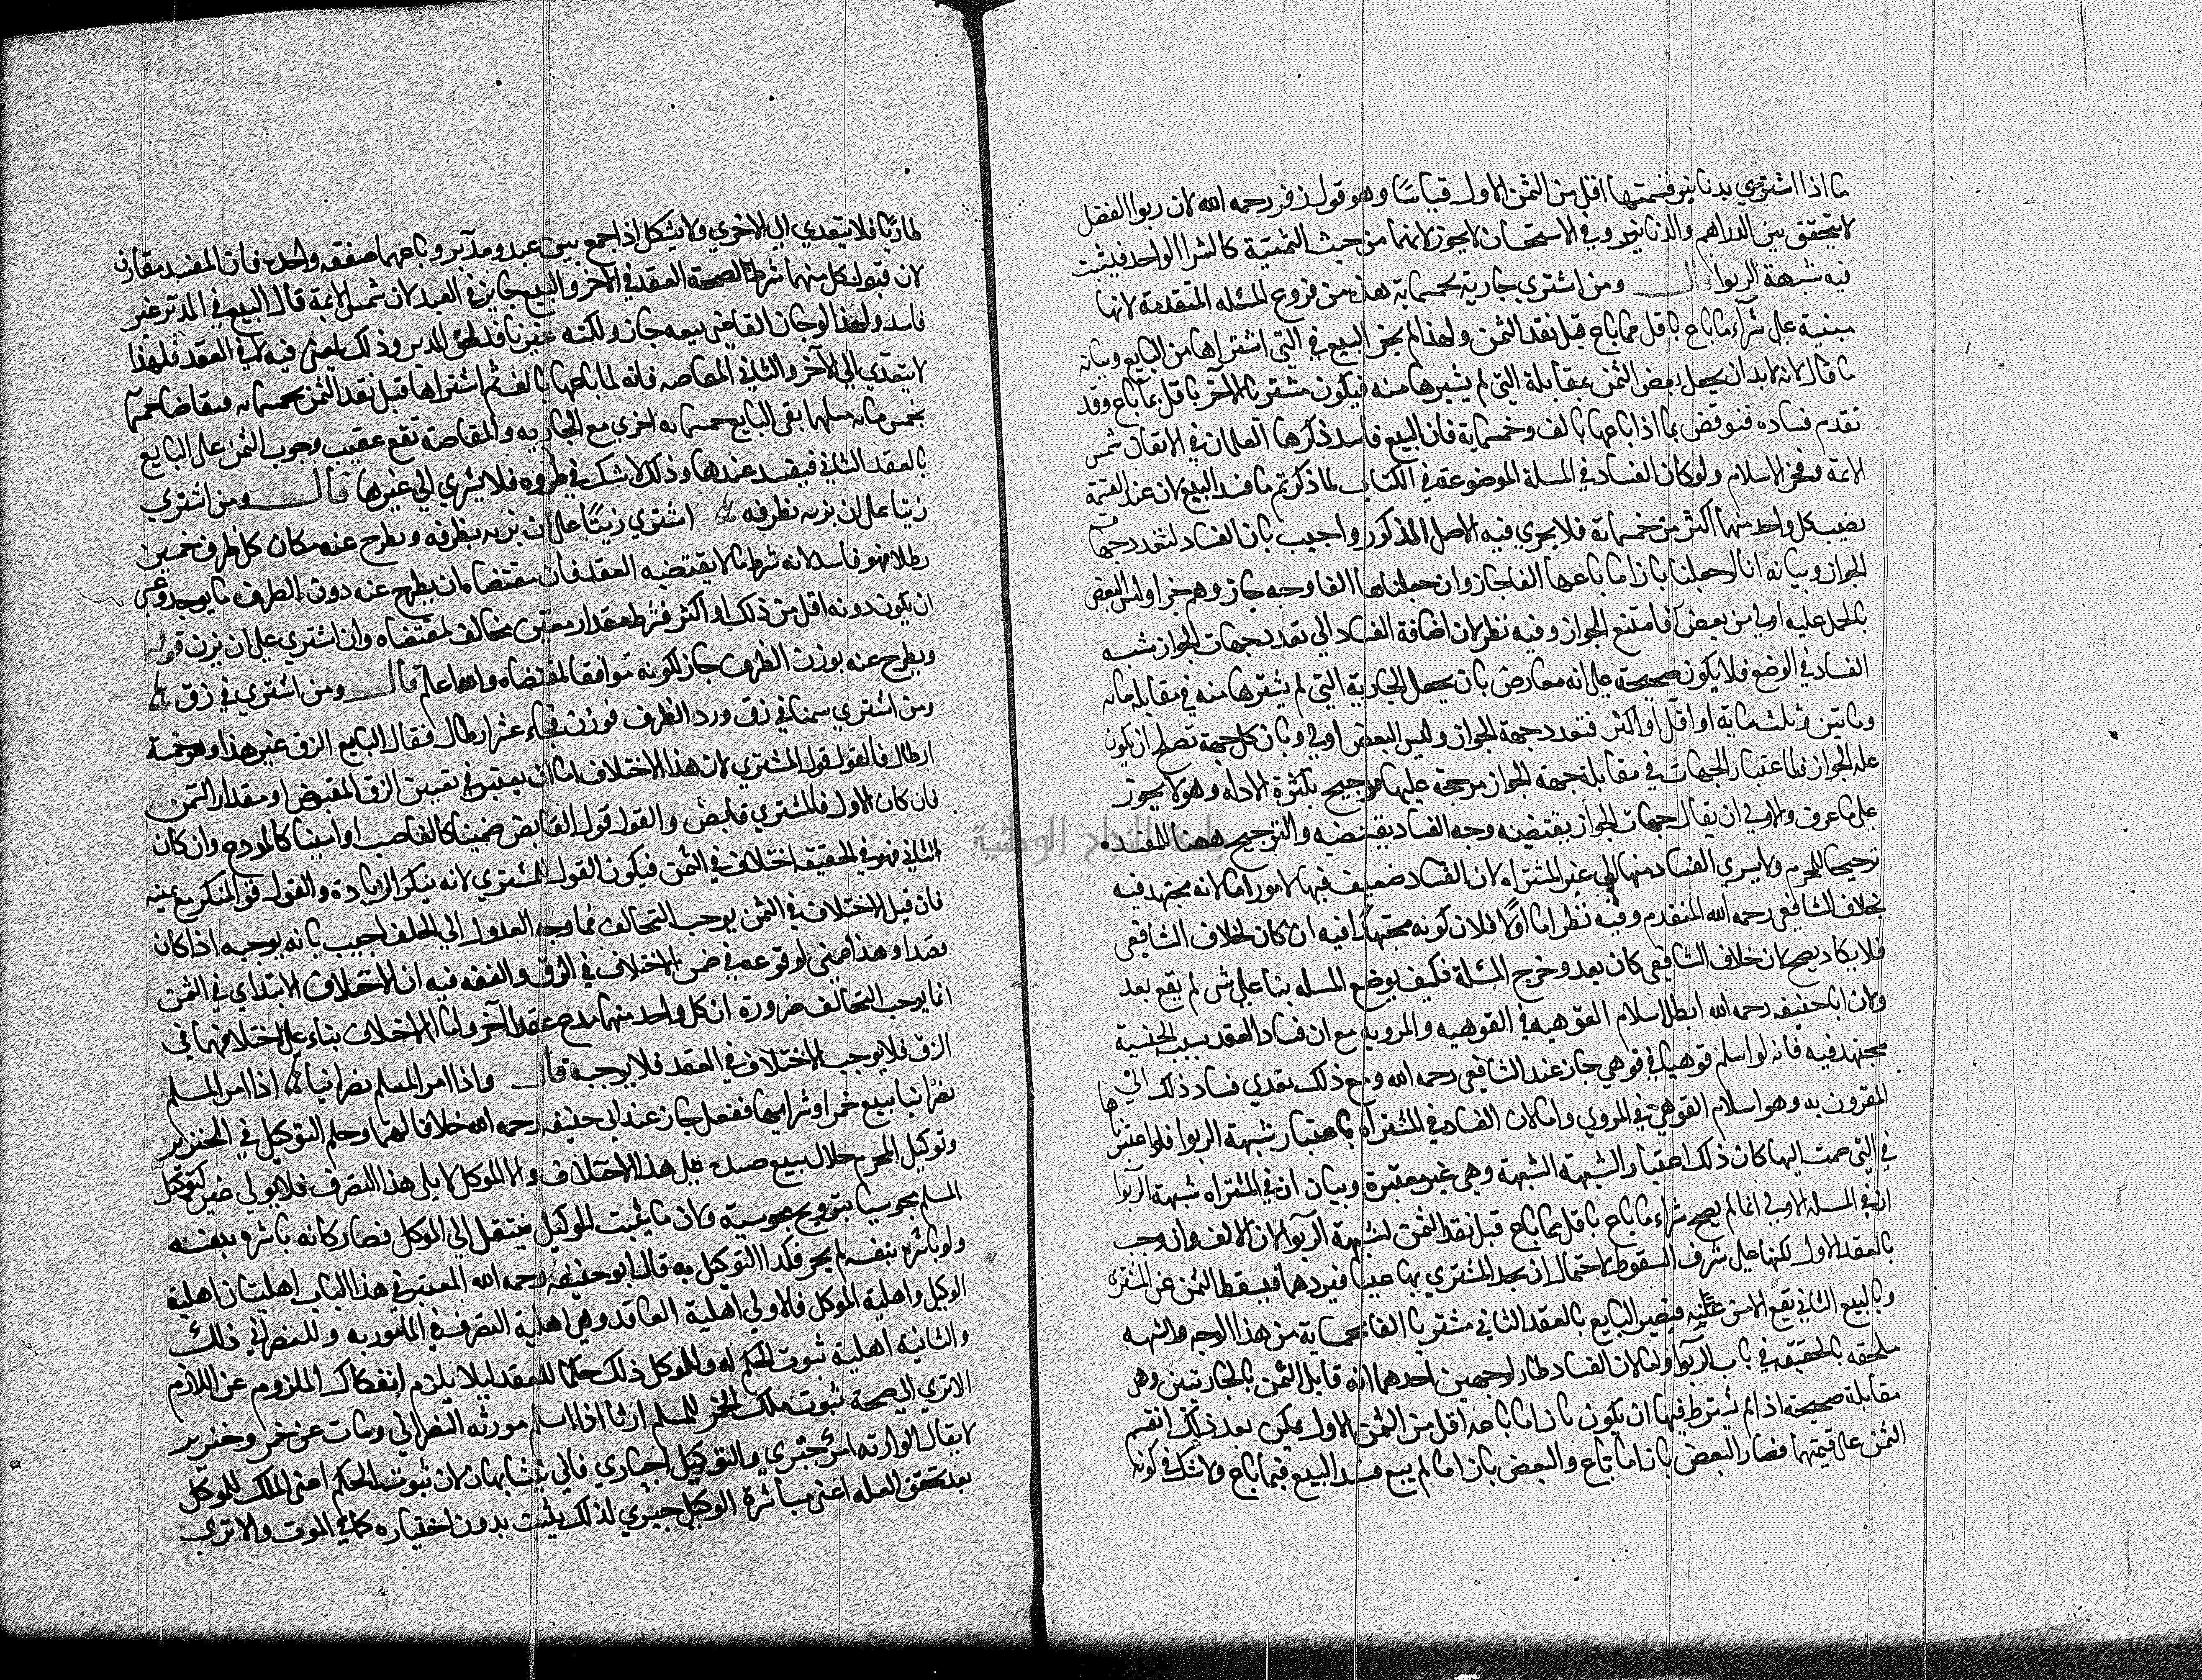 ما اذا اشتري بدنانير قيمتها اقل من الثمن الاول قياسًا وهو قول زفر رحمه الله لان ربوا الفضل
لا يتحقق بين الدراهم والدنانير وفي الاستحسان لا يجوز لانهما من حيث الثمنية كالشرا الواحد فيثبت
فيه شبهة الربوا قال ومن اشتري جارية بخمسماية هذه من فروع المسئله المتقدمة لانها
مبنية علي شرآء ما باع باقل مما باع قبل نقد الثمن ولهذا لم يجز البيع في التي اشتراها من البايع وبيانه
ما قال لانه لا بد ان يجعل بعض الثمن بمقابلة التي لم يشترها منه فيكون مشتريا للاخر باقل مما باع وقد
تقدم فساده فنوقض بما اذا باعها بالف وخمسماية فان البيع فاسد ذكرها العلمان في الاتقان شمس
الايمة وفخر الاسلام ولو كان الفساد في المسلة الموضوعة في الكتاب لما ذكرتم ما فسد البيع لان عند القسمة
يصيب كل واحد منهما اكثر من خمسماية فلا يجري فيه الاصل المذكور واجيب بان الفساد لتعدد جهات
الجواز وبيانه انا ان جعلنا بازا ما باعها الفا جاز وان جعلناها الفا وحبه جاز وهلم جرا وليس البعض
بالحمل عليه اولي من بعض فامتنع الجواز وفيه نظر لان اضافة الفساد الي تعدد جهات الجواز شبه
الفساد في الوضع فلا يكون صحيحة علي انه معارض بان يجعل الجارية التي لم يشترها منه في مقابلة مايه
ومايتين وثلث ماية او اقل او اكثر فتعدد جهة الجواز وليس البعض اولي وبان كل جهة تصلح ان يكون
علة الجواز فلما اعتبار الجهات في مقابلة جهة الجواز مرجحة عليها ترجيح بكثرة الادلة وهو لا يجوز
علي ما عرف والاولي ان يقال جهات الجواز يقتضيه وجه الفساد يقتضيه والترجيح ههنا للمفسده
ترجيحا للمحرم ولا يسري الفساد منها الي غير المشتراه لان الفساد ضعيف فيها لامور اما لانه مجتهد فيه
بخلاف الشافعي رحمه الله المتقدم وفيه نظر اما اولًا فلان كونه مجتهدًا فيه ان كان لخلاف الشافعي
فلا يكاد يصح لان خلاف الشافعي كان بعد وخرج المسئلة فكيف يوضع المسله بنا علي شي لم يقع بعد
ولان ابا حنيفه رحمه الله ابطل اسلام القوهيه في القوهيه والمرويه مع ان فساد العقد بسبب الجنسية
مجتهد فيه فانه لو اسلم قوهيا في قوهي جاز عند الشافعي رحمه الله ومع ذلك تعدي فساد ذلك الي
المقرون به وهو اسلام القوهي في المروي واما لان الفساد في المشتراة باعتبار شبهة الربوا فلو اعتبرناها
في التي ضمت اليها كان ذلك اعتبار الشبهة الشبهة وهي غير معتبرة وبيان ان في المشتراه شبهة الربوا
ان في المسله الاولي انما لم يصح شراء ما باع باقل مما باع قبل نقد الثمن لشبهة الربوا لان الالف وان وجب
بالعقد الاول لكنها علي شرف السقوط لاحتمال ان يجد المشتري بها عيبا فيردها فيسقط الثمن عن المشتري
وبالبيع الثاني يقع الامن عليه فيصير البايع بالعقد الثاني مشتريا الفا بخمسماية من هذا الوجه والشبهه
ملحقه بالحقيقه في باب الربوا واما لان الفساد طار لوجهين احدهما انه قابل الثمن بالجاريتين وهي
مقابلة صحيحة اذ لم يشترط فيها ان يكون بازا ما باعه اقل من الثمن الاول لكن بعد ذلك انقسم
الثمن علي قيمتهما فصار البعض بازا ما باع والبعض بازا ما لم يبع ففسد البيع فيما باع ولا شك في كونه
طاريًا فلا يتعدي الي الاخري ولا يشكل اذا جمع بين عبد ومدبر وباعهما صفقه واحده فان المفسد مقارن
لان قبول كل منهما شرط لصحة العقد في الاخر والبيع جايز في العبد لان شمس الايمة قال البيع في المدبر غير
فاسد ولهذا لو جاز القاضي بيعه جاز ولكنه غير نافذ لحق المدبر وذلك لمعني فيه لا في العقد فلهذا
لا يتعدي الي الآخر والثاني المقاصه فانه لما باعها بالف ثم اشتراها قبل نقد الثمن بخمسمايه فتقاصا خمسمايه
بخمس مايه مثلها بقي للبايع خمسمايه اخري مع الجاريه والمقاصة تقع عقيب وجوب الثمن علي البايع
بالعقد الثاني فيفسد عندها وذلك لا شك في طروه فلا يسري الي غيرها قال ومن اشتري
زيتا علي ان يزنه بظرفه اشتري زيتًا علي ان يزنه بظرفه ويطرح عنه مكان كل ظرف خمسين
رطلا فهو فاسد لانه شرط ما لا يقتضيه العقد فان مقتضاه ان يطرح عنه دون الظرف ما يوجد وعسي
ان يكون دونه اقل من ذلك او اكثر فشرط مقدار معين مخالف لمقتضاه وان اشتري علي ان يزن قوله
ويطرح عنه بوزن الظرف جاز لكونه موافقا لمقتضاه والله اعلم قال ومن اشتري في زق
ومن اشتري سمنا في زق ورد الظرف فوزن فجاء عشر ارطال فقال البايع الزق غير هذا وهو خمسة
ارطال فالقول قول المشتري لان هذا الاختلاف اما ان يعتبر في تعيين الزق المقبوض او مقدار الثمن
فان كان الاول فالمشتري قابض والقول قول القابض ضمينا كالغاصب او امينا كالمودع وان كان
الثاني فهو في الحقيقه اختلاف في الثمن فيكون القول للمشتري لانه ينكر الزيادة والقول قول المنكر مع يمينه
فان قيل الاختلاف في الثمن يوجب التحالف فما وجه العدول الي الحلف اجيب بانه يوجبه اذا كان
قصدا وهذا ضمني لوقوعه في ضمن الاختلاف في الزق والفقه فيه ان الاختلاف الابتداي في الثمن
انما يوجب التحالف ضرورة ان كل واحد منهما مدع عقدا آخر واما الاختلاف بناء علي اختلافهما في
الزق فلا يوجب الاختلاف في العقد فلا يوجبه قال واذا امر المسلم نصرانيا اذا امر المسلم
نصرانيا ببيع خمر او شرايها ففعل جاز عند ابي حنيفه رحمه الله خلافا لهما وحلم التوكيل في الخنزير
وتوكيل المحرم حلال ببيع صيده علي هذا الاختلاف والا الموكل لا يلي هذا التصرف فلا يولي غيره كتوكيل
المسلم مجوسيا بتزويج مجوسية ولان ما يثبت للوكيل ينتقل الي الموكل فصار كانه باشره بنفسه
ولو باشره بنفسه لم يجز فكذا التوكيل به قال ابو حنيفه رحمه الله المعتبر في هذا الباب اهليتان اهلية
الوكيل واهلية الموكل فالاولي اهلية العاقد وهي اهلية التصرف في المامور به وللنصراني ذلك
والثانيه اهلية ثبوت الحكم له وللموكل ذلك حكما للعقد ليلا يلزم انفكاك الملزوم عن اللازم
الا تري الي صحة ثبوت ملك الخمر للمسلم ارثا اذا اسلم مورثه النصراني ومات عن خمر وخنزير
لا يقال الوارثه امر جبري والتوكيل اختياري فاني يتشابهان لان ثبوت الحكم اعني الملك للموكل
بعد تحقق العله اعني مباشرة الوكيل جبري لذلك يثبت بدون اختياره كما في الموت والا تري
جامعة النجاح الوطنية